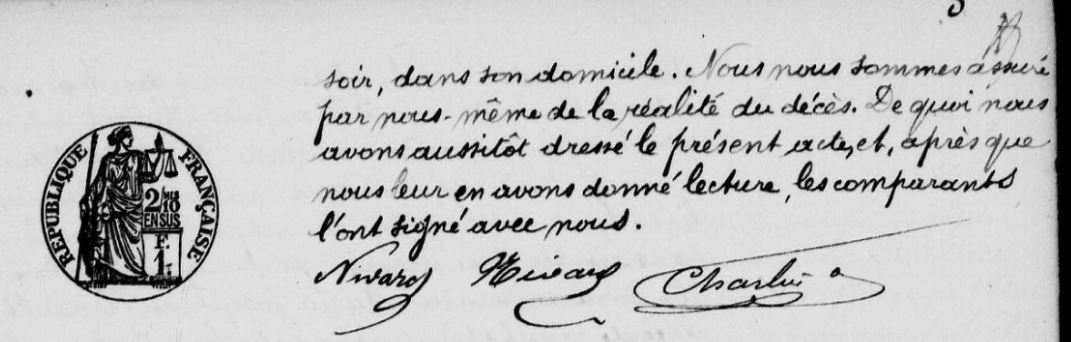 soir, dans son domicile. Nous nous sommes assuré
par nous-même de la réalité du décès. De quoi nous
avons aussitôt dressé le présent acte, et, après que
nous leur en avons donné lecture, les comparants
l'ont signé avec nous.
RÉPUBLIQUE FRANÇAISE
2/10
EN SUS
F.
1
Nivard